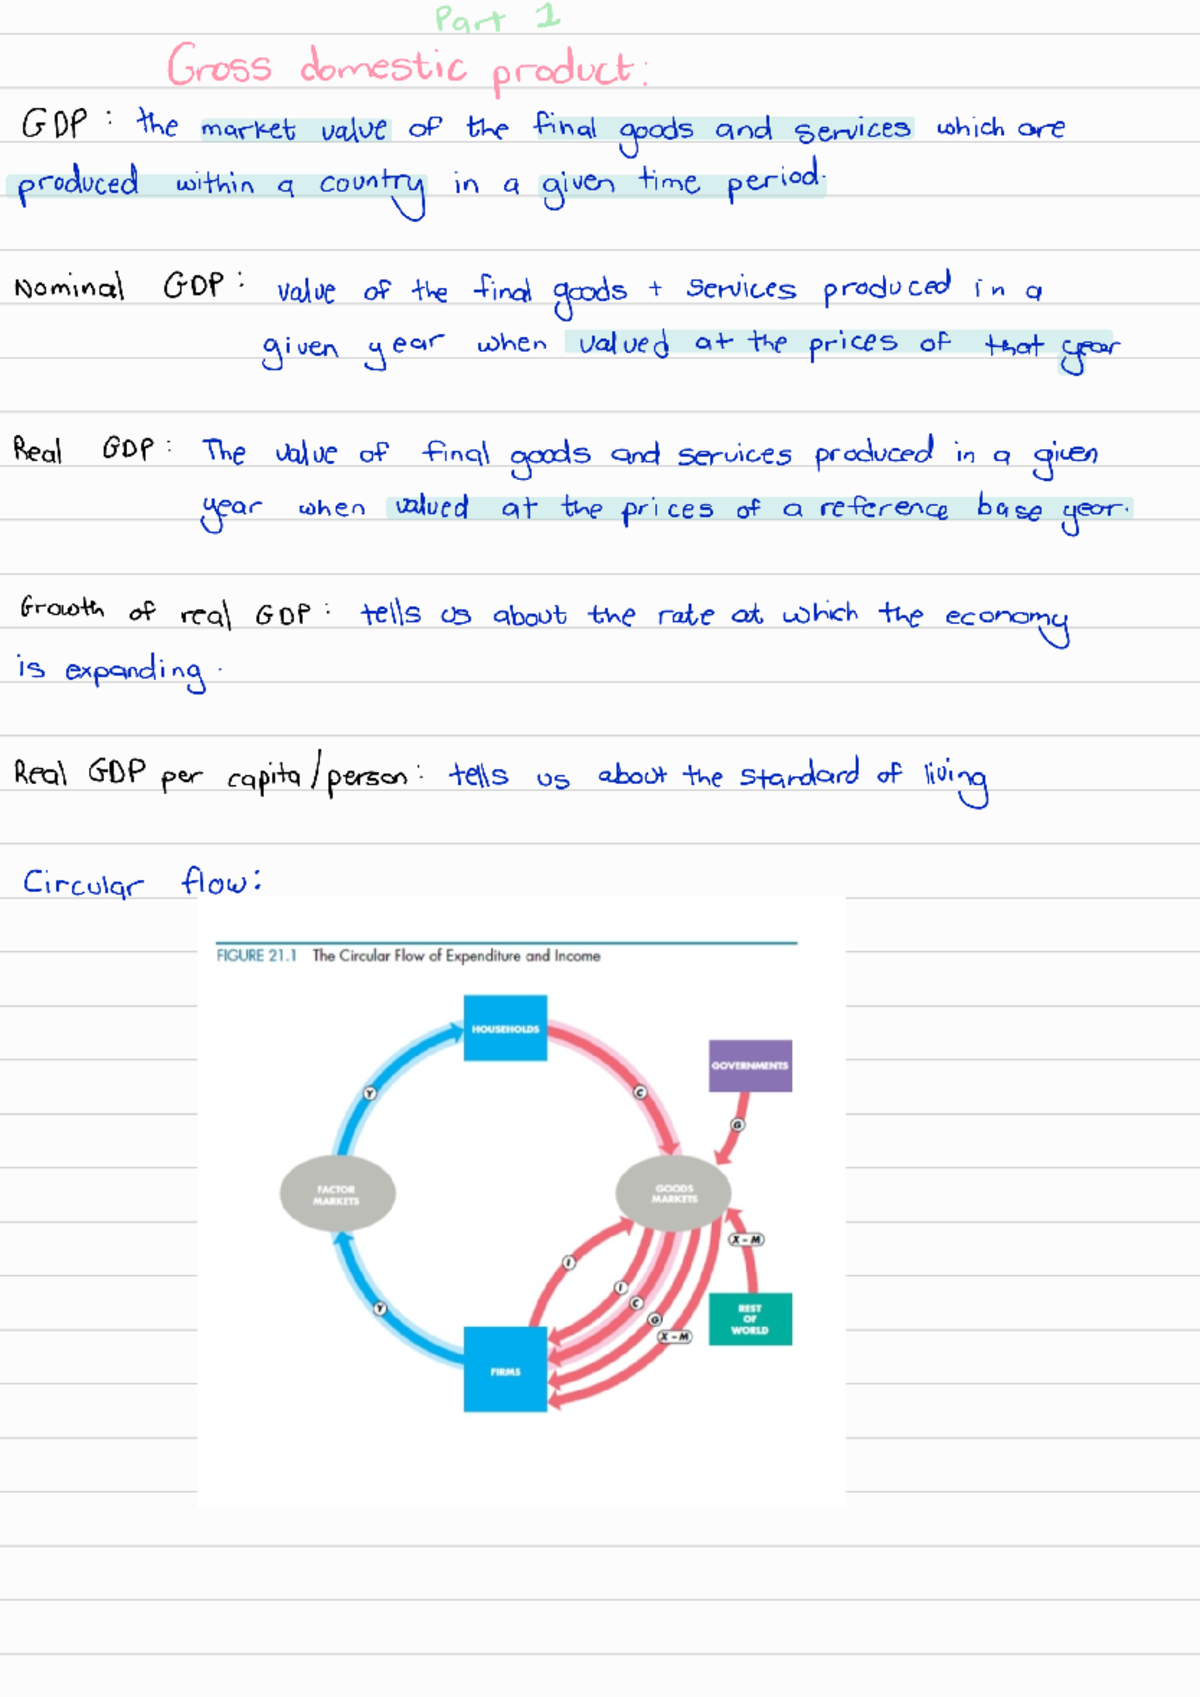 Part 1
Gross domestic product:
GDP: the market value of the final goods and services which are
produced within a country in a given time period.
Nominal GDP: value of the final goods + services produced in a
given year when valued at the prices of that year
Real GDP: The value of final goods and services produced in a given
year when valued at the prices of a reference base year.
Growth of real GDP: tells us about the rate at which the economy
is expanding.
Real GDP per capita/person: tells us about the standard of living
Circular flow:
FIGURE 21.1 The Circular Flow of Expenditure and Income
HOUSEHOLDS
GOVERNMENTS
Y
C
G
FACTOR
MARKETS
GOODS
MARKETS
X – M
I
I
C
G
X – M
Y
REST
OF
WORLD
FIRMS